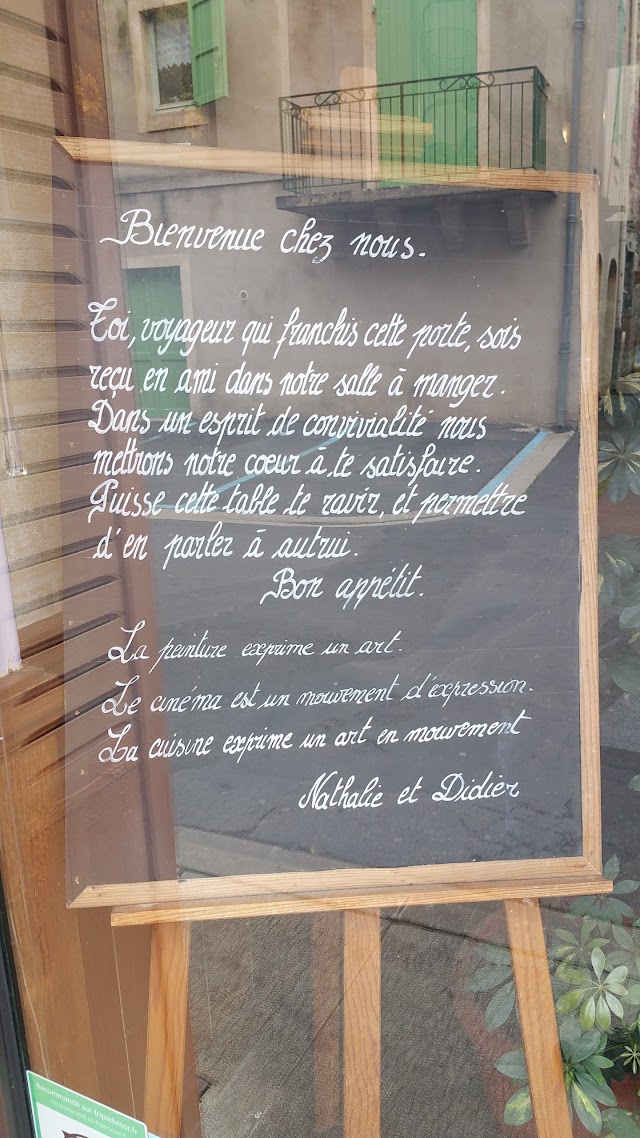 Bienvenue chez nous.
Toi, voyageur qui franchis cette porte, sois
reçu en ami dans notre salle à manger.
Dans un esprit de convivialité nous
mettrons notre coeur à te satisfaire.
Puisse cette table te ravir, et permettre
d'en parler à autrui.
Bon appétit.
La peinture exprime un art.
Le cinéma est un mouvement d'expression.
La cuisine exprime un art en mouvement
Nathalie et Didier
Recommandé sur tripadvisor.fr